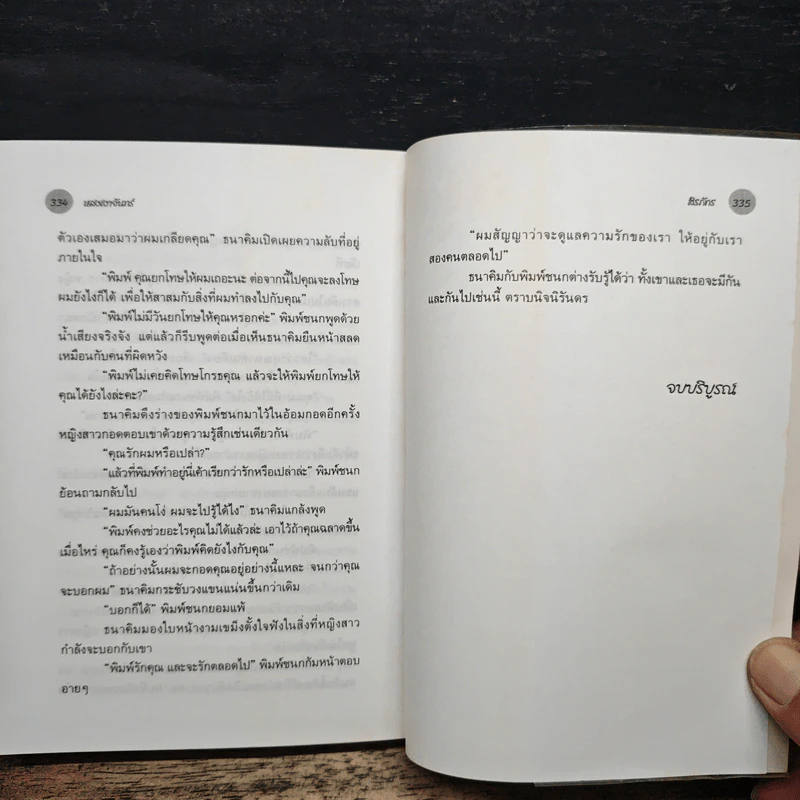 334
ตัวเองเสมอมาว่าผมเกลียดคุณ” ธนาคิมเปิดเผยความลับที่อยู่
ภายในใจ
“พิมพ์ คุณยกโทษให้ผมเถอะนะ ต่อจากนี้ไปคุณจะลงโทษ
ผมยังไงก็ได้ เพื่อให้สาสมกับสิ่งที่ผมทำลงไปกับคุณ”
“พิมพ์ไม่มีวันยกโทษให้คุณหรอกค่ะ” พิมพ์ชนกพูดด้วย
น้ำเสียงจริงจัง แต่แล้วก็รีบพูดต่อเมื่อเห็นธนาคิมยืนหน้าสลด
เหมือนกับคนที่ผิดหวัง
“พิมพ์ไม่เคยคิดโทษโกรธคุณ แล้วจะให้พิมพ์ยกโทษให้
คุณได้ยังไงล่ะคะ?”
ธนาคิมดึงร่างของพิมพ์ชนกมาไว้ในอ้อมกอดอีกครั้ง
หญิงสาวกอดตอบเขาด้วยความรู้สึกเช่นเดียวกัน
“คุณรักผมหรือเปล่า?”
“แล้วที่พิมพ์ทำอยู่นี่เค้าเรียกว่ารักหรือเปล่าล่ะ” พิมพ์ชนก
ย้อนถามกลับไป
“ผมมันคนโง่ ผมจะไปรู้ได้ไง” ธนาคิมแกล้งพูด
“พิมพ์คงช่วยอะไรคุณไม่ได้แล้วล่ะ เอาไว้ถ้าคุณฉลาดขึ้น
เมื่อไหร่ คุณก็คงรู้เองว่าพิมพ์คิดยังไงกับคุณ”
“ถ้าอย่างนั้นผมจะกอดคุณอยู่อย่างนี้แหละ จนกว่าคุณ
จะบอกผม” ธนาคิมกระชับวงแขนแน่นขึ้นกว่าเดิม
“บอกก็ได้” พิมพ์ชนกยอมแพ้
ธนาคิมมองใบหน้างามเขม็งตั้งใจฟังในสิ่งที่หญิงสาว
กำลังจะบอกกับเขา
“พิมพ์รักคุณ และจะรักตลอดไป” พิมพ์ชนกก้มหน้าตอบ
อายๆ
335
“ผมสัญญาว่าจะดูแลความรักของเรา ให้อยู่กับเรา
สองคนตลอดไป”
ธนาคิมกับพิมพ์ชนกต่างรับรู้ได้ว่า ทั้งเขาและเธอจะมีกัน
และกันไปเช่นนี้ ตราบนิจนิรันดร
จบบริบูรณ์